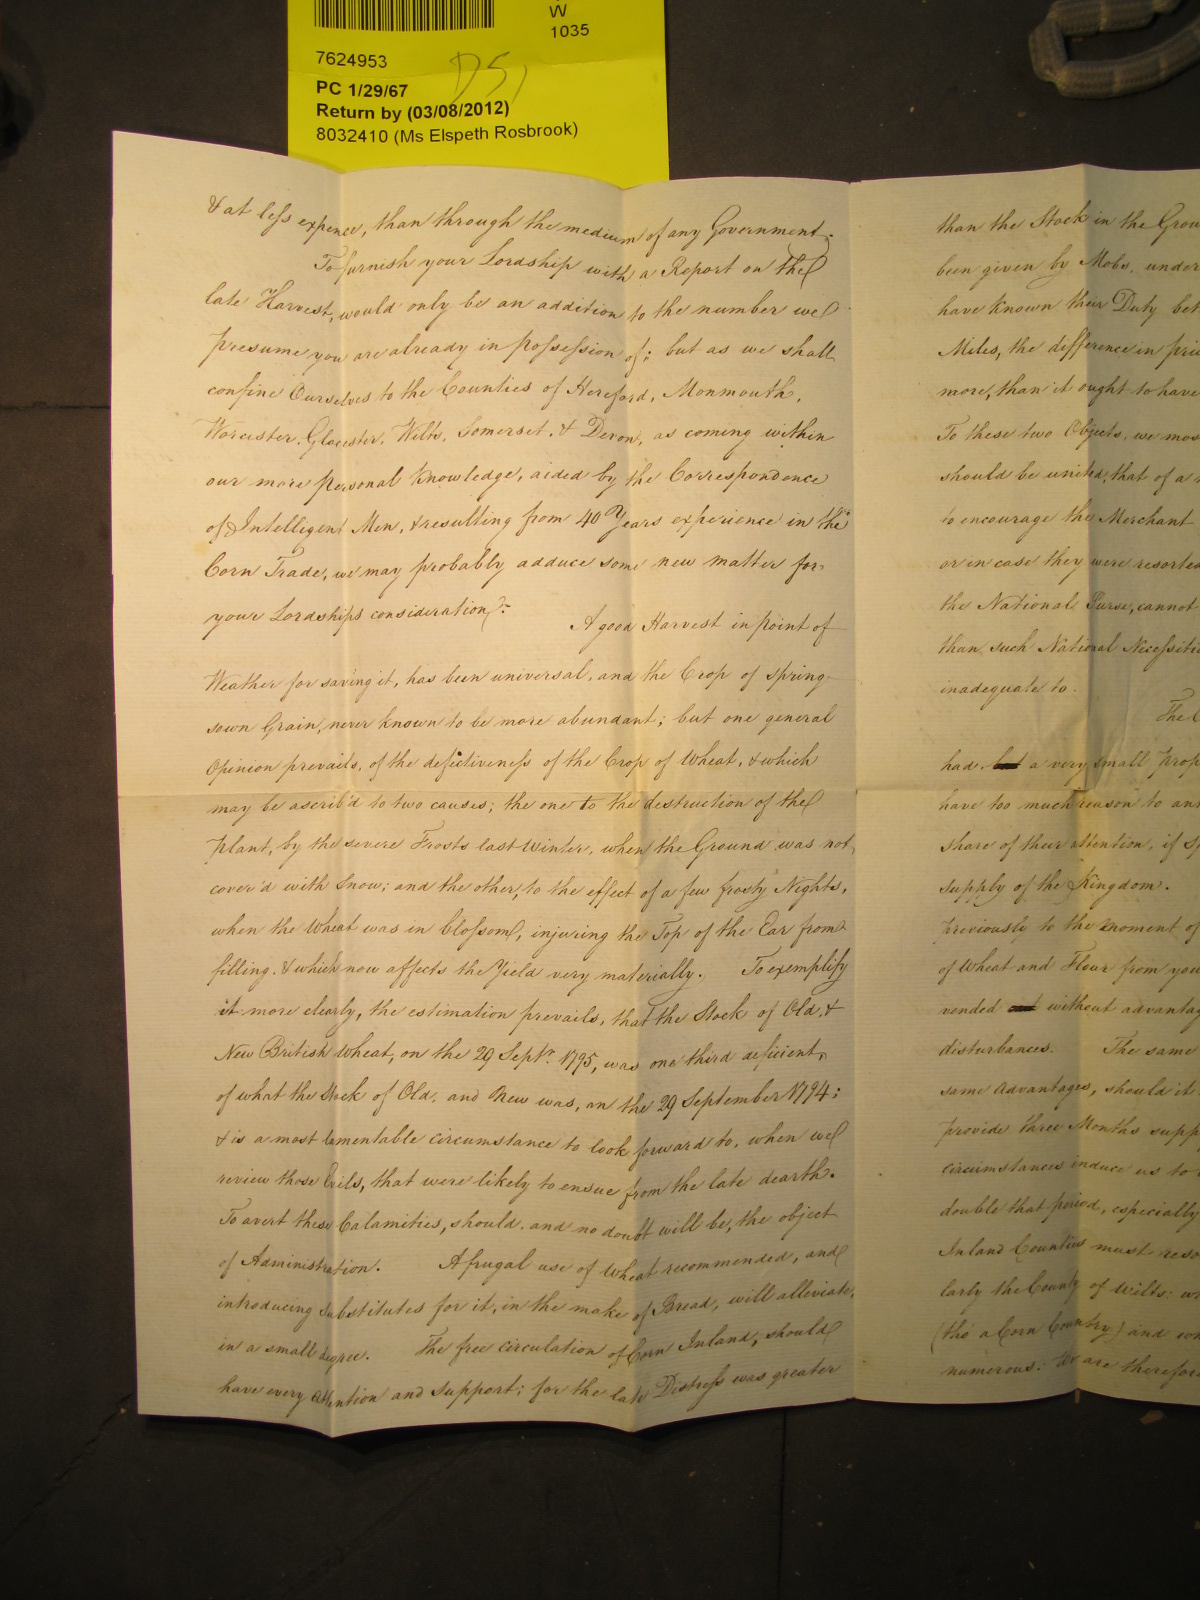 W
1035
7624953
DS1
PC 1/29/67
Return by (03/08/2012)
8032410 (Ms Elspeth Rosbrook)
& at less expence, than through the medium of any Government.
To furnish your Lordship with a Report on the
late Harvest, would only be an addition to the number we
presume you are already in possession of; but as we shall
confine Ourselves to the Counties of Hereford, Monmouth,
Worcester, Glocester, Wilts, Somerset, & Devon, as coming within
our more personal knowledge, aided by the Correspondence
of Intelligent Men, & resulting from 40 Years experience in the
Corn Trade, we may probably adduce some new matter for
your Lordships consideration:
A good Harvest in point of
Weather for saving it, has been universal, and the Crop of spring
sown Grain, never known to be more abundant; but one general
Opinion prevails, of the defectiveness of the Crop of Wheat, & which
may be ascrib'd to two causes; the one to the destruction of the
plant, by the severe Frosts last winter, when the Ground was not
cover'd with Snow; and the other, to the effect of a few frosty Nights,
when the Wheat was in blossom, injuring the Top of the Ear from
filling, & which now affects the Yield very materially. To exemplify
it more clearly, the estimation prevails, that the Stock of Old, &
New British Wheat, on the 29 Septr. 1795, was one third deficient,
of what the Stock of Old, and New was, on the 29 September 1794;
& is a most lamentable circumstance to look forward to, when we
review those Evils, that were likely to ensue from the late dearth.
To avert these Calamities, should, and no doubt will be, the object
of Administration. A frugal use of Wheat recommended, and
introducing substitutes for it, in the make of Bread, will alleviate,
in a small degree. The free circulation of Corn Inland, should
have every attention and support; for the late Distress was greater
than the Stock in the
been given by Mobs, under
have known their Duty
Miles, the difference in
more, than it ought to have
To these two Objects, we
should be united, that of a
to encourage the Merchant
or in case they were
the National Purse, cannot
than such National
inadequate to.
The
had a very small
have too much reason to
share of their attention, if
supply of the Kingdom.
previously to the moment of
of Wheat and Flour from
vended without
disturbances. The same
same Advantages, should it
provide three Months
circumstances induce us to
double that period, especially
Inland Counties must
larly the County of Wilts;
(tho' a Corn Country) and
numerous: We are